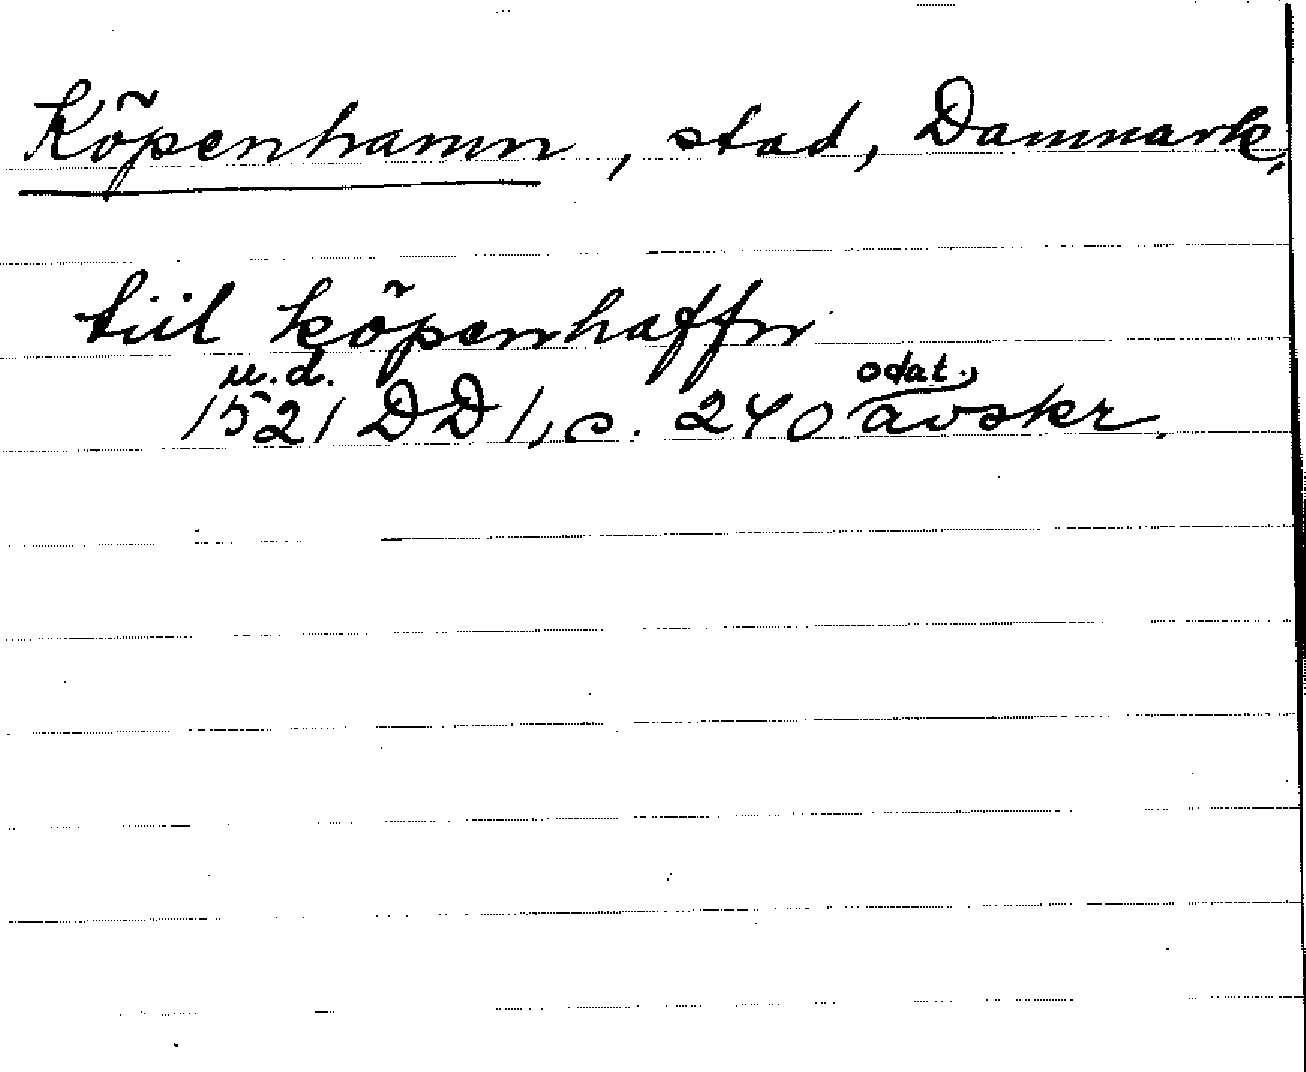 Köpenhamn, stad, Danmark,
tiil köpenhaffn
u.d. odat.,
1521 DD 1, s. 240 avskr.